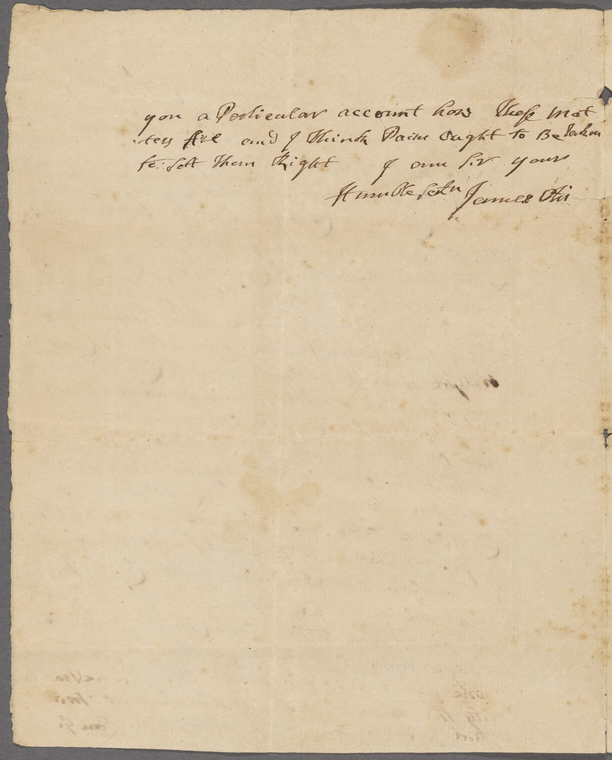 you a Perticular account how These mat
ters Are and I Think Pains ought to Be Taken
to Sett Them Right I am Sir yours
Humble Servt James Otis